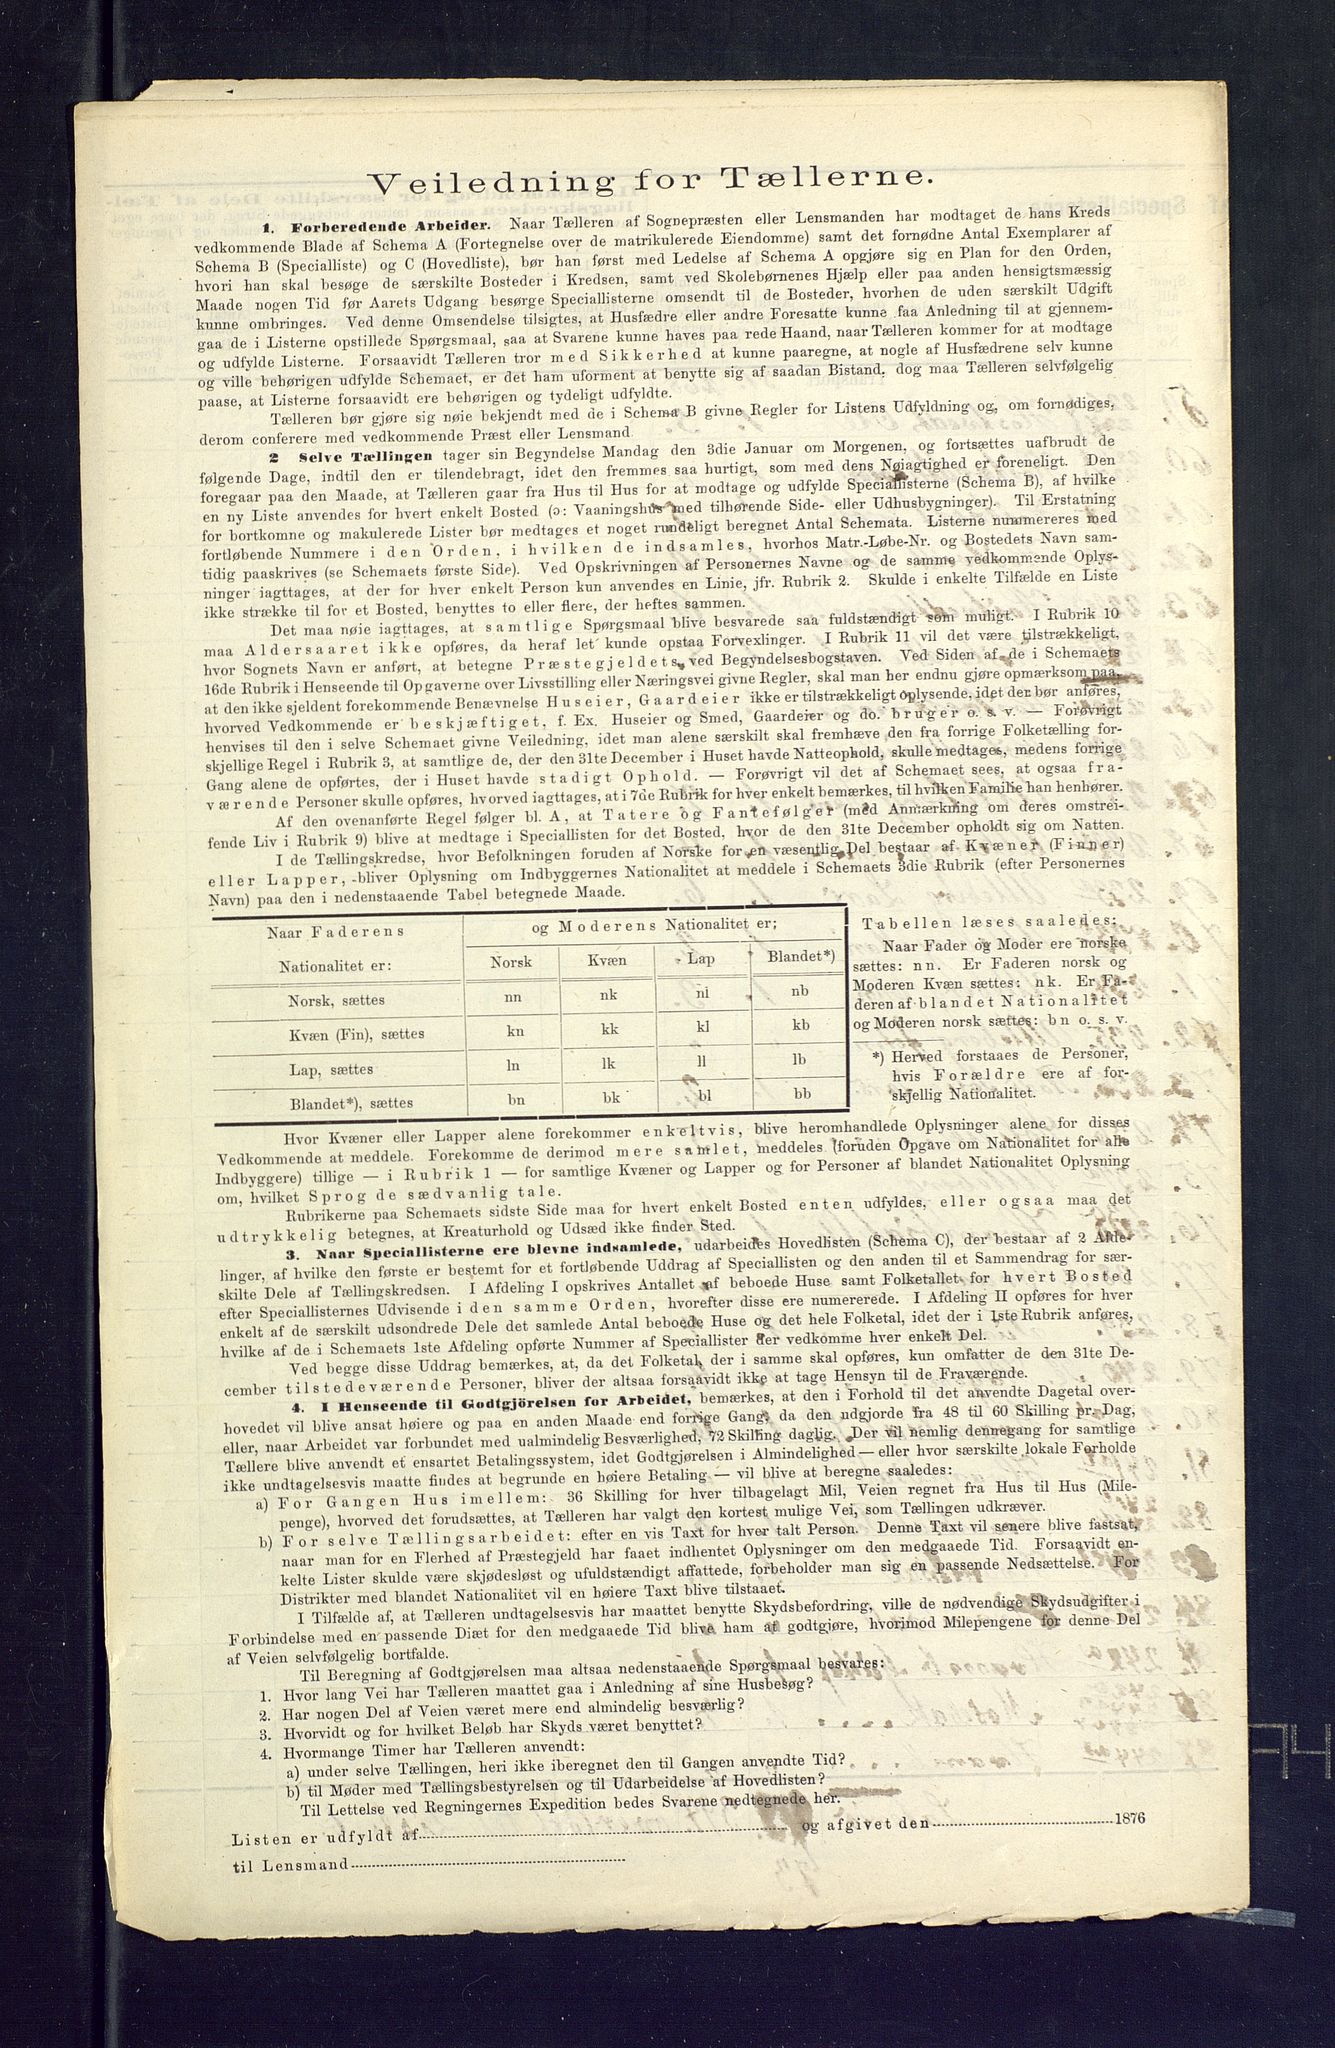 Veiledning for Tællerne.
1. Forberedende Arbeider. Naar Tælleren af Sognepræsten eller Lensmanden har modtaget de hans Kreds
vedkommende Blade af Schema A (Fortegnelse over de matrikulerede Eiendomme) samt det fornødne Antal Exemplarer af
Schema B (Specialliste) og C (Hovedliste), bør han først med Ledelse af Schema A opgjøre sig en Plan for den Orden,
hvori han skal besøge de særskilte Bosteder i Kredsen, samt ved Skolebørnenes Hjælp eller paa anden hensigtsmæssig
Maade nogen Tid før Aarets Udgang besørge Speciallisterne omsendt til de Bosteder, hvorhen de uden særskilt Udgift
kunne ombringes. Ved denne Omsendelse tilsigtes, at Husfædre eller andre Foresatte kunne faa Anledning til at gjennem-
gaa de i Listerne opstillede Spørgsmaal, saa at Svarene kunne haves paa rede Haand, naar Tælleren kommer for at modtage
og udfylde Listerne. Forsaavidt Tælleren tror med Sikkerhed at kunne paaregne, at nogle af Husfædrene selv kunne
og ville behørigen udfylde Schemaet, er det ham uforment at benytte sig af saadan Bistand, dog maa Tælleren selvfølgelig
paase, at Listerne forsaavidt ere behørigen og tydeligt udfyldte.
Tælleren bør gjøre sig nøie bekjendt med de i Schema B givne Regler for Listens Udfyldning og, om fornødiges,
derom conferere med vedkommende Præst eller Lensmand.
2 Selve Tællingen tager sin Begyndelse Mandag den 3die Januar om Morgenen, og fortsættes uafbrudt de
følgende Dage, indtil den er tilendebragt, idet den fremmes saa hurtigt, som med dens Nøiagtighed er foreneligt. Den
foregaar paa den Maade, at Tælleren gaar fra Hus til Hus for at modtage og udfylde Speciallisterne (Schema B), af hvilke
en ny Liste anvendes for hvert enkelt Bosted (ɔ: Vaaningshus med tilhørende Side- eller Udhusbygninger). Til Erstatning
for bortkomne og makulerede Lister bør medtages et noget rundeligt beregnet Antal Schemata. Listerne nummereres med
fortløbende Nummere i den Orden, i hvilken de indsamles, hvorhos Matr.-Løbe-Nr. og Bostedets Navn sam-
tidig paaskrives (se Schemaets første Side). Ved Opskrivningen af Personernes Navne og de samme vedkommende Oplys-
ninger iagttages, at der for hver enkelt Person kun anvendes en Linie, jfr. Rubrik 2. Skulde i enkelte Tilfælde en Liste
ikke strække til for et Bosted, benyttes to eller flere, der heftes sammen.
Det maa nøie iagttages, at samtlige Spørgsmaal blive besvarede saa fuldstændigt som muligt. I Rubrik 10
maa Aldersaaret ikke opføres, da heraf let kunde opstaa Forvexlinger. I Rubrik 11 vil det være tilstrækkeligt,
hvor Sognets Navn er anført, at betegne Præstegjeldets ved Begyndelsesbogstaven. Ved Siden af de i Schemaets
16de Rubrik i Henseende til Opgaverne over Livsstilling eller Næringsvei givne Regler, skal man her endnu gjøre opmærksom paa,
at den ikke sjeldent forekommende Benævnelse Huseier, Gaardeier ikke er tilstrækkeligt oplysende, idet der bør anføres,
hvorved Vedkommende er beskjæftiget, f. Ex. Huseier og Smed, Gaardeier og do. bruger o. s. v. — Forøvrigt
henvises til den i selve Schemaet givne Veiledning, idet man alene særskilt skal fremhæve den fra forrige Folketælling for-
skjellige Regel i Rubrik 3, at samtlige de, der den 31te December i Huset havde Natteophold, skulle medtages, medens forrige
Gang alene de opførtes, der i Huset havde stadigt Ophold. — Forøvrigt vil det af Schemaet sees, at ogsaa fra-
værende Personer skulle opføres, hvorved iagttages, at i 7de Rubrik for hver enkelt bemærkes, til hvilken Familie han henhører.
Af den ovenanførte Regel følger bl. A, at Tatere og Fantefølger (med Anmærkning om deres omstrei-
fende Liv i Rubrik 9) blive at medtage i Speciallisten for det Bosted, hvor de den 31te December opholdt sig om Natten.
I de Tællingskredse, hvor Befolkningen foruden af Norske for en væsentlig Del bestaar af Kvæner (Finner)
eller Lapper, bliver Oplysning om Indbyggernes Nationalitet at meddele i Schemaets 3die Rubrik (efter Personernes
Navn) paa den i nedenstaaende Tabel betegnede Maade.
Naar Faderens og Moderens Nationalitet er;
Nationalitet er: Norsk Kvæn Lap Blandet*)
Norsk, sættes nn nk nl nb
Kvæn (Fin), sættes kn kk kl kb
Lap, sættes ln lk ll lb
Blandet*), sættes bn bk bl bb
Tabellen læses saaledes:
Naar Fader og Moder ere norske
sættes: nn. Er Faderen norsk og
Moderen Kvæn sættes: nk. Er Fa-
deren af blandet Nationalitet
og Moderen norsk sættes: bn o. s. v.
*) Herved forstaaes de Personer,
hvis Forældre ere af for-
skjellig Nationalitet.
Hvor Kvæner eller Lapper alene forekommer enkeltvis, blive heromhandlede Oplysninger alene for disses
Vedkommende at meddele. Forekomme de derimod mere samlet, meddeles (foruden Opgave om Nationalitet for alle
Indbyggere) tillige — i Rubrik 1 — for samtlige Kvæner og Lapper og for Personer af blandet Nationalitet Oplysning
om, hvilket Sprog de sædvanlig tale.
Rubrikerne paa Schemaets sidste Side maa for hvert enkelt Bosted enten udfyldes, eller ogsaa maa det
udtrykkelig betegnes, at Kreaturhold og Udsæd ikke finder Sted.
3. Naar Speciallisterne ere blevne indsamlede, udarbeides Hovedlisten (Schema C), der bestaar af 2 Afde-
linger, af hvilke den første er bestemt for et fortløbende Uddrag af Speciallisten og den anden til et Sammendrag for sær-
skilte Dele af Tællingskredsen. I Afdeling I opskrives Antallet af beboede Huse samt Folketallet for hvert Bosted
efter Speciallisternes Udvisende i den samme Orden, hvorefter disse ere numererede. I Afdeling II opføres for hver
enkelt af de særskilt udsondrede Dele det samlede Antal beboede Huse og det hele Folketal, idet der i 1ste Rubrik anføres,
hvilke af de i Schemaets 1ste Afdeling opførte Nummer af Speciallister der vedkomme hver enkelt Del.
Ved begge disse Uddrag bemærkes, at, da det Folketal, der i samme skal opføres, kun omfatter de den 31te De-
cember tilstedeværende Personer, bliver der altsaa forsaavidt ikke at tage Hensyn til de Fraværende.
4. I Henseende til Godtgjörelsen for Arbeidet, bemærkes, at den i Forhold til det anvendte Dagetal over-
hovedet vil blive ansat høiere og paa en anden Maade end forrige Gang, da den udgjorde fra 48 til 60 Skilling pr. Dag,
eller, naar Arbeidet var forbundet med ualmindelig Besværlighed, 72 Skilling daglig. Der vil nemlig dennegang for samtlige
Tællere blive anvendt et ensartet Betalingssystem, idet Godtgjørelsen i Almindelighed — eller hvor særskilte lokale Forholde
ikke undtagelsesvis maatte findes at begrunde en høiere Betaling — vil blive at beregne saaledes:
a) For Gangen Hus imellem: 36 Skilling for hver tilbagelagt Mil, Veien regnet fra Hus til Hus (Mile-
penge), hvorved det forudsættes, at Tælleren har valgt den kortest mulige Vei, som Tællingen udkræver.
b) For selve Tællingsarbeidet: efter en vis Taxt for hver talt Person. Denne Taxt vil senere blive fastsat,
naar man for en Flerhed af Præstegjeld har faaet indhentet Oplysninger om den medgaaede Tid. Forsaavidt en-
kelte Lister skulde være skjødesløst og ufuldstændigt affattede, forbeholder man sig en passende Nedsættelse. For
Distrikter med blandet Nationalitet vil en høiere Taxt blive tilstaaet.
I Tilfælde af, at Tælleren undtagelsesvis har maattet benytte Skydsbefordring, ville de nødvendige Skydsudgifter i
Forbindelse med en passende Diæt for den medgaaede Tid blive ham at godtgjøre, hvorimod Milepengene for denne Del
af Veien selvfølgelig bortfalde.
Til Beregning af Godtgjørelsen maa altsaa nedenstaaende Spørgsmaal besvares:
1. Hvor lang Vei har Tælleren maattet gaa i Anledning af sine Husbesøg?
2. Har nogen Del af Veien været mere end almindelig besværlig?
3. Hvorvidt og for hvilket Beløb har Skyds været benyttet?
4. Hvormange Timer har Tælleren anvendt:
a) under selve Tællingen, heri ikke iberegnet den til Gangen anvendte Tid?
b) til Møder med Tællingsbestyrelsen og til Udarbeidelse af Hovedlisten?
Til Lettelse ved Regningernes Expedition bedes Svarene nedtegnede her.
Listen er udfyldt af og afgivet den 1876
til Lensmand